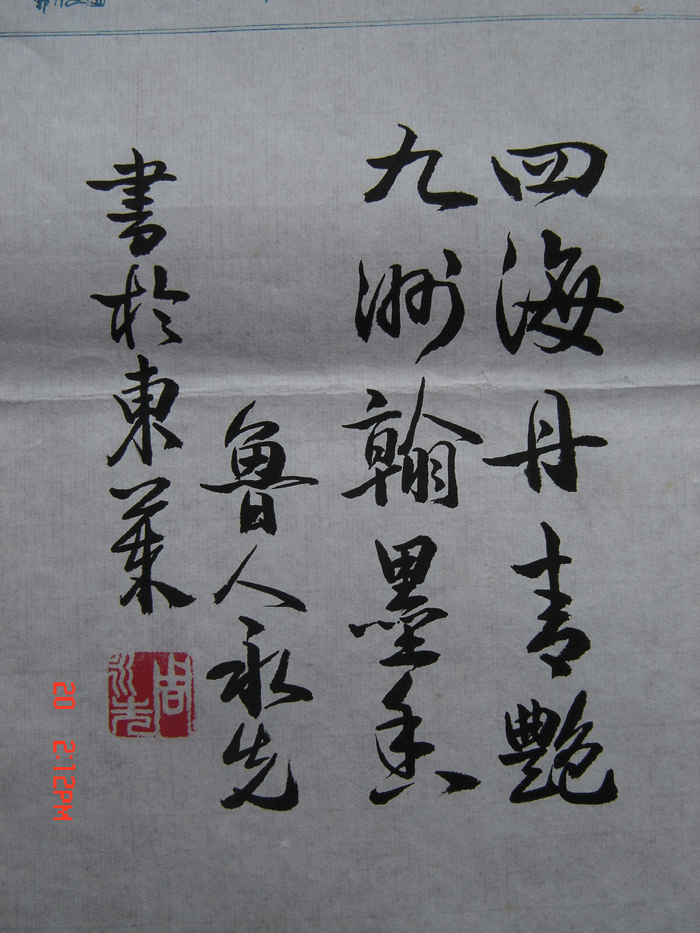 四海丹青艷
九洲翰墨香
魯人永先
書於東萊
周永先
20 2:12PM